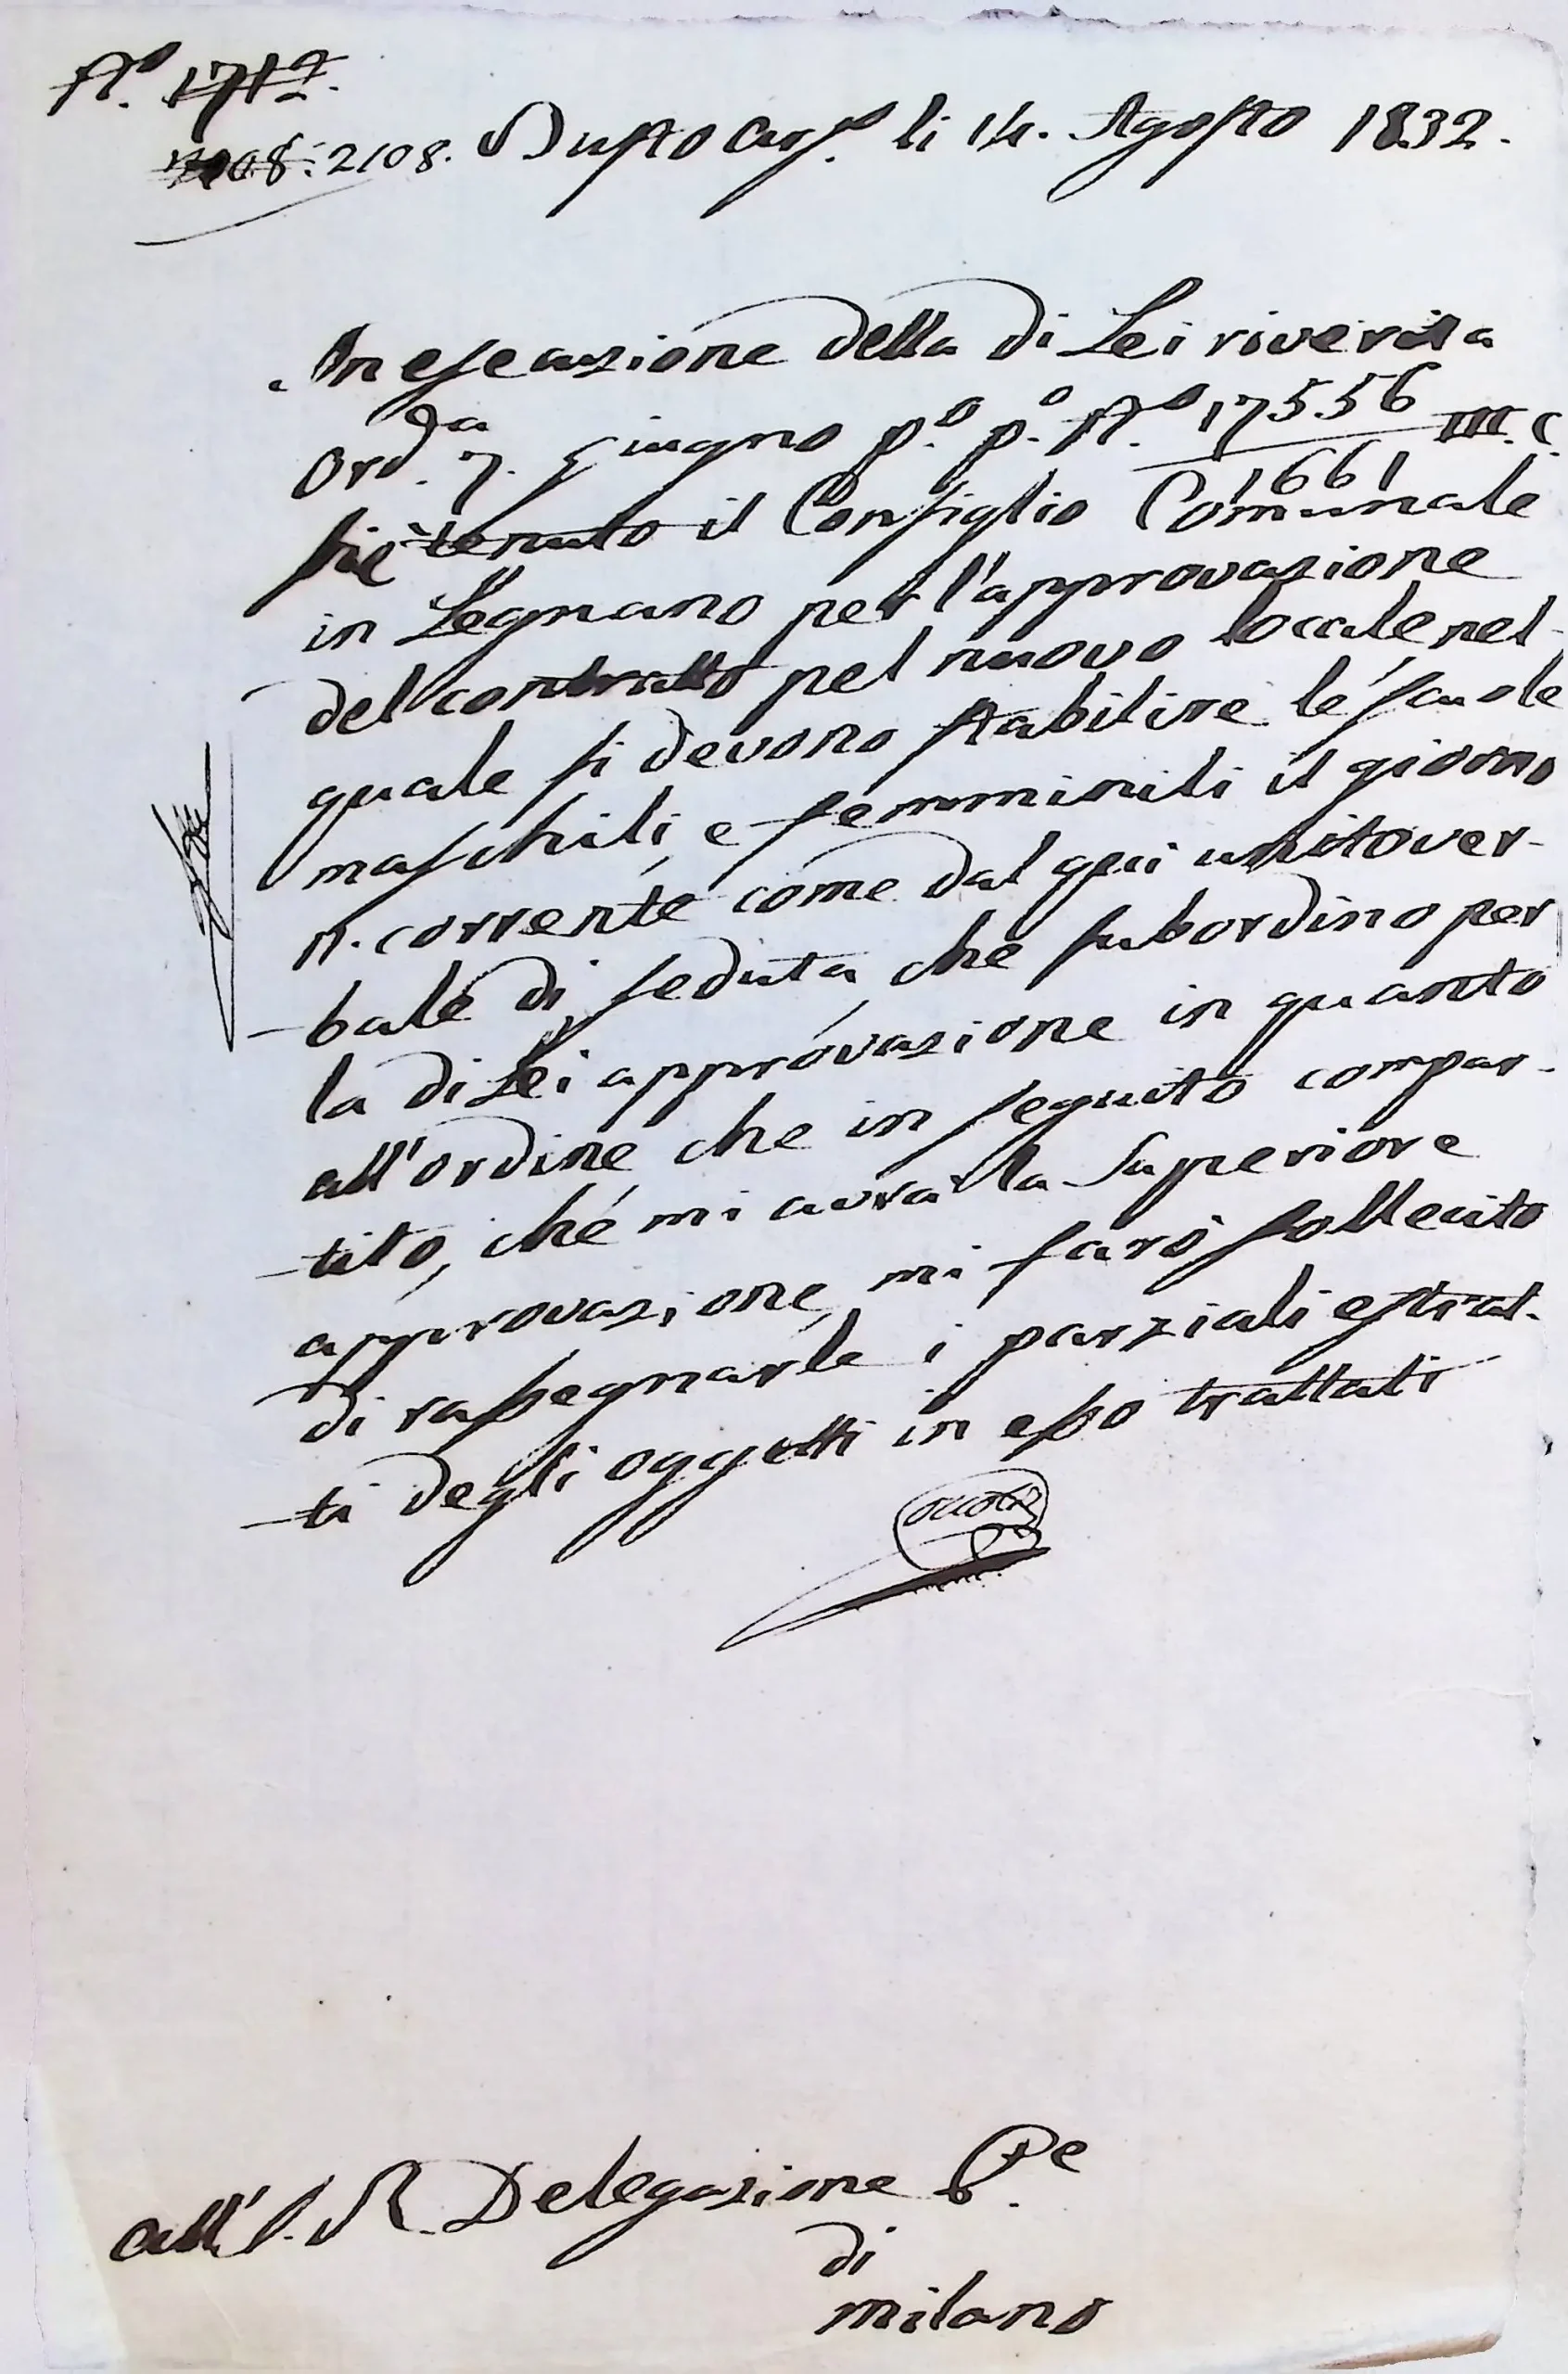 N.º 1712.
2108. Busto Arsº. li 14. Agosto 1832.
In esecuzione della di Lei riverita
Ord.da 7. Giugno p.º p.º N.º 17556/1661 III. C.
si è tenuto il Consiglio Comunale
in Legnano per l'approvazione
del contratto pel nuovo locale nel
quale si devono stabilire le scuole
maschili, e femminili il giorno
11. corrente come dal qui unito ver-
-bale di seduta, che subordino per
la di Lei approvazione in quanto
all'ordine, che in seguito compar-
-tito, che mi avrà la Superiore
approvazione, mi farò sollecito
di rassegnarle i parziali estrat-
-ti degli oggetti in esso trattati
All' I. R. Delegazione P.e
di
Milano